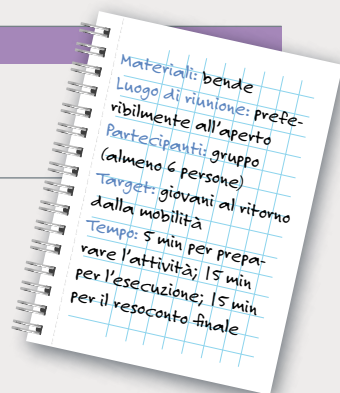 Materiali: bende
Luogo di riunione: prefe-
ribilmente all'aperto
Partecipanti: gruppo
(almeno 6 persone)
Target: giovani al ritorno
dalla mobilità
Tempo: 5 min per prepa-
rare l'attività; 15 min
per l'esecuzione; 15 min
per il resoconto finale